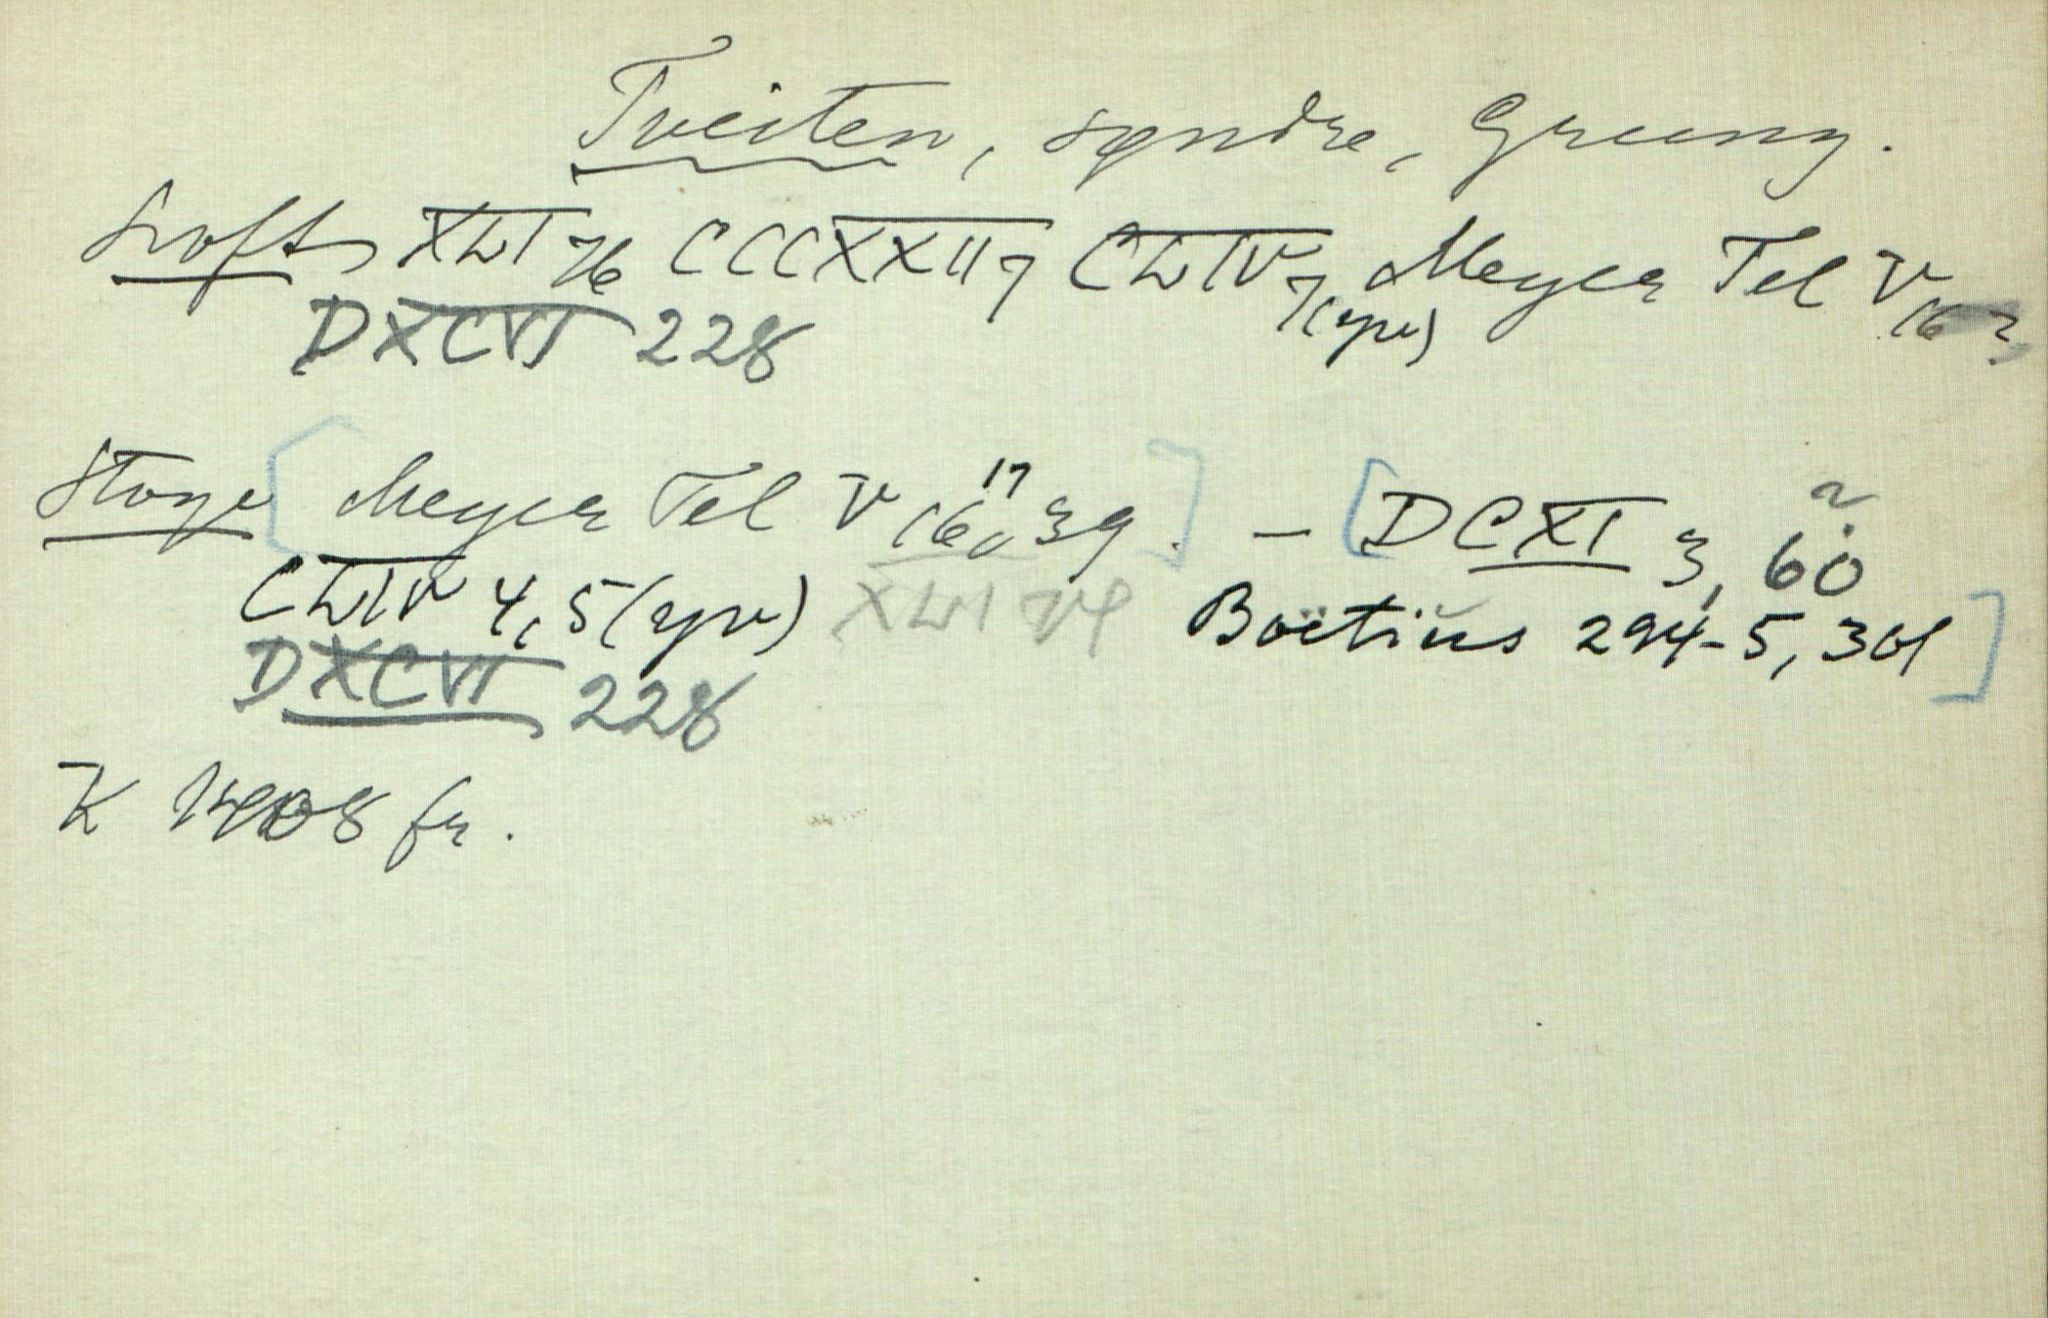 Tveiten, søndre, Grunng.
Loft XLVI 76 CCCXXII 7 CLVIV 7 (ypv) Meyer Tel V 16
DXCVI 228
Stoge [Meyer Tel V 16, 17, 39.] – [DCXI 3, 60
CLVIV 4, 5 (ypv) XLVI 74 Boëtius 294-5, 301]
DXCVI 228
K 1408 fr.